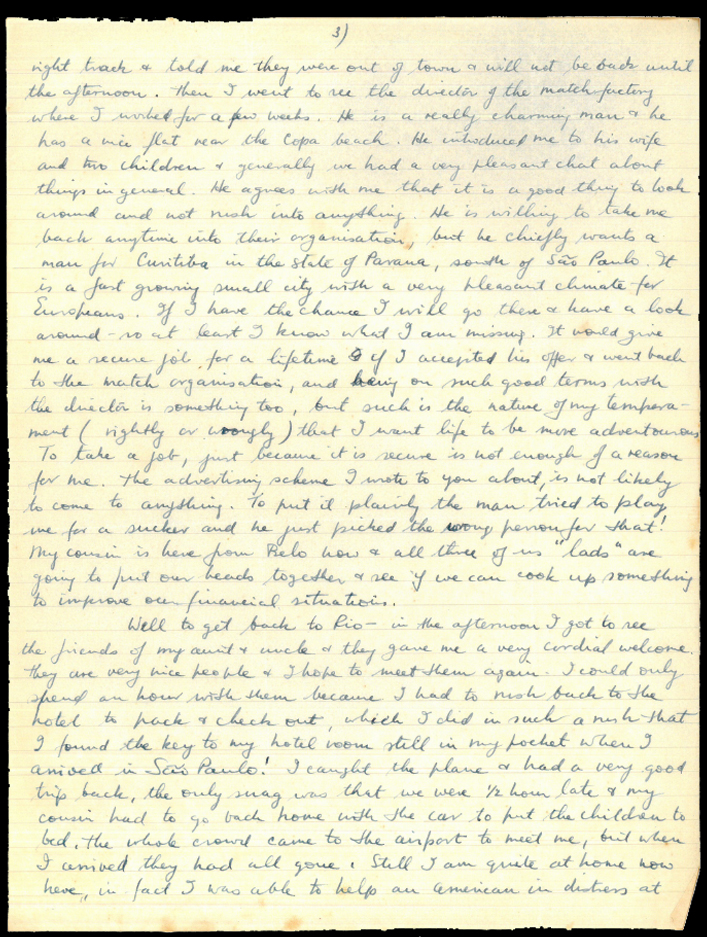 3)
right track & told me they were out of town & will not be back until
the afternoon. Then I went to see the director of the matchfactory
where I worked for a few weeks. He is a really charming man & he
has a nice flat near the Copa beach. He introduced me to his wife
and two children & generally we had a very pleasant chat about
things in general. He agrees with me that it is a good thing to look
around and not rush into anything. He is willing to take me
back anytime into their organisation, but he chiefly wants a
man for Curitiba in the state of Parana, south of São Paulo. It
is a fast growing small city with a very pleasant climate for
Europeans. If I have the chance I will go there & have a look
around - so at least I know what I am missing. It would give
me a secure job for a lifetime if I accepted his offer & went back
to the match organisation, and being on such good terms with
the director is something too, but such is the nature of my tempera-
ment (rightly or wrongly) that I want life to be more adventourous
To take a job, just because it is secure is not enough of a reason
for me. The advertising scheme I wrote to you about, is not likely
to come to anything. To put it plainly the man tried to play
me for a sucker and he just picked the wrong person for that!
My cousin is here from Belo now & all three of us "lads" are
going to put our heads together & see if we can cook up something
to improve our financial situations.
Well to get back to Rio - in the afternoon I got to see
the friends of my aunt & uncle & they gave me a very cordial welcome.
They are very nice people & I hope to meet them again. I could only
spend an hour with them because I had to rush back to the
hotel to pack & check out, which I did in such a rush that
I found the key to my hotel room still in my pocket when I
arrived in São Paulo! I caught the plane & had a very good
trip back, the only snag was that we were 1/2 hour late & my
cousin had to go back home with the car to put the children to
bed. The whole crowd came to the airport to meet me, but when
I arrived they had all gone. Still I am quite at home now
here, in fact I was able to help an American in distress at